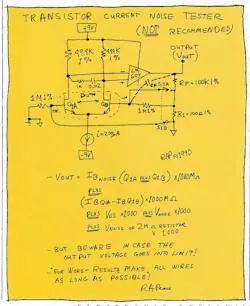 TRANSISTOR CURRENT NOISE TESTER
(NOT
RECOMMENDED)
+9V
OUTPUT
(VOUT)
49.9K
1%
499K
1%
1K
RF=100K1%
1M1%
Q1A
Q1B
1M1%
R2=100Ω1%
I=200μA
-9V
RAP 1990
- VOUT = IBNOISE (Q1A PLUS Q1B) X1000MΩ
PLUS
(IBQ1A-IBQ1B) X1000MΩ
PLUS VOS X1000 PLUS VNOISE X1000
PLUS VNOISE OF 2MΩ RESISTOR
X 1000
- BUT BEWARE IN CASE THE
OUTPUT VOLTAGE GOES INTO LIMIT!
- FOR WORST RESULTS MAKE ALL WIRES
AS LONG AS POSSIBLE!